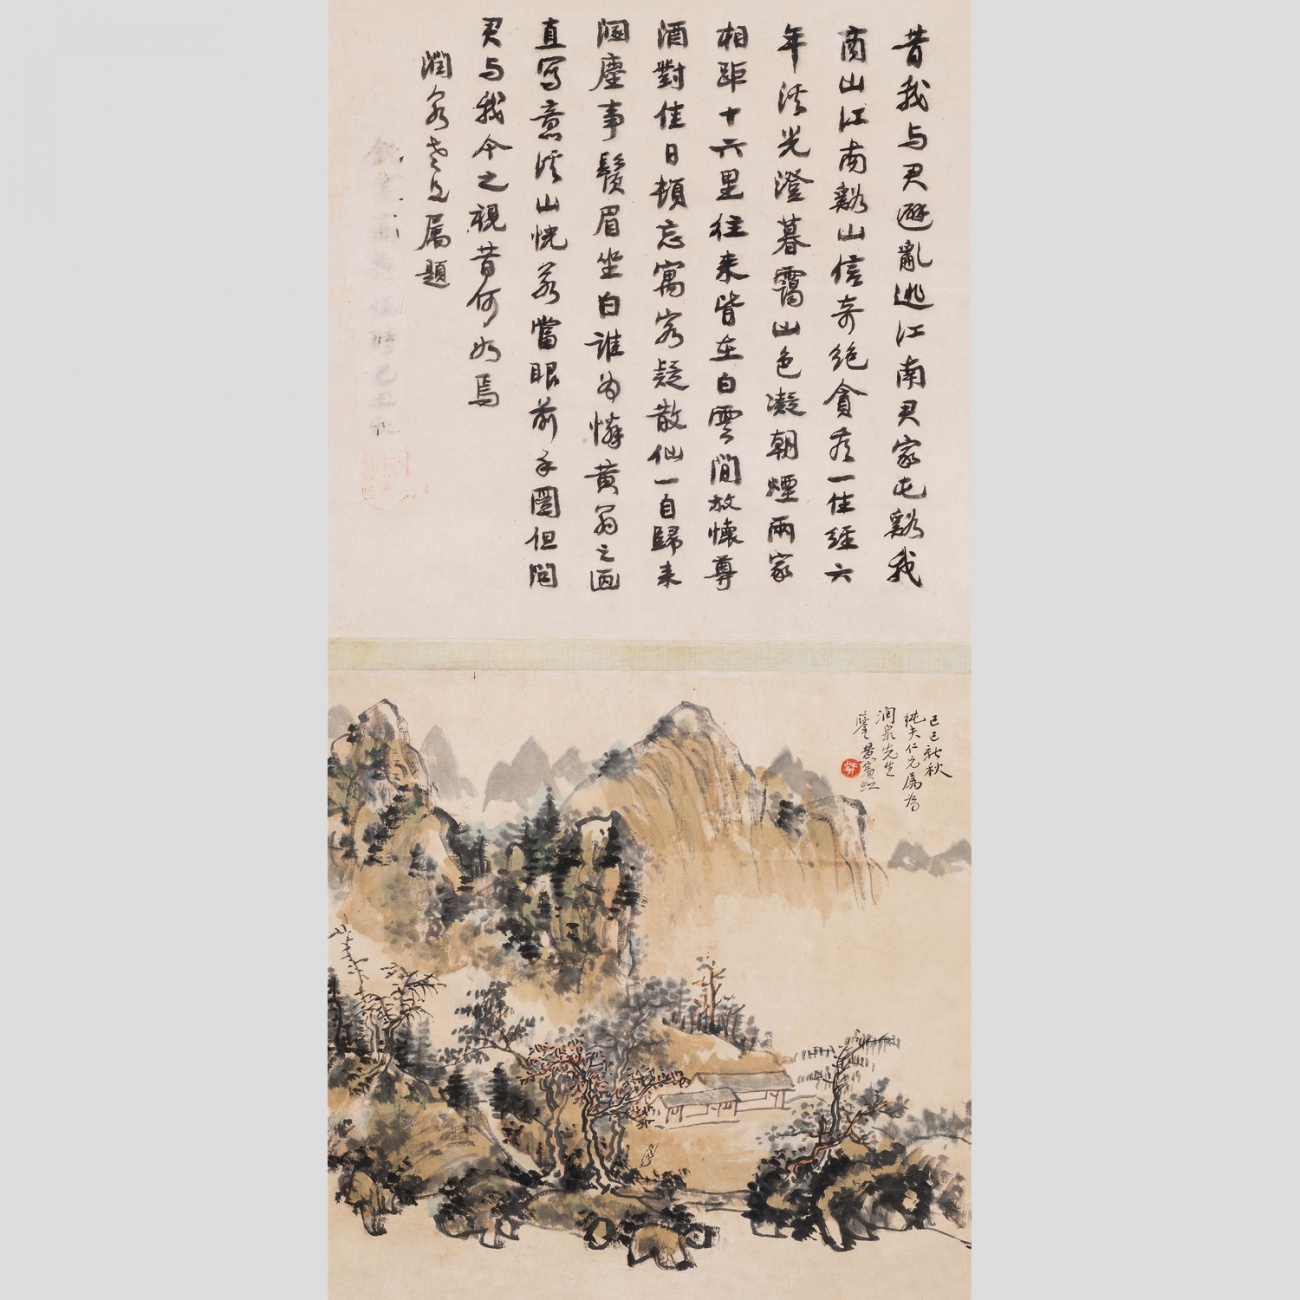 昔我与君避亂逃江南君家屯谿我
商山江南谿山信奇絶貪為一住経六
年溪光澄暮靄山色凝朝煙兩家
相距十六里往来皆在白雲間放懐尊
酒對佳日頓忘寓客疑散仙一自歸来
溷塵事鬢眉坐白誰为憐黄翁之画
直寫意溪山恍若當眼前手圖但問
君与我今之視昔何如焉
潤泉老兄属題
己巳新秋
純夫仁兄属為
润泉先生
鑒 黄賓虹